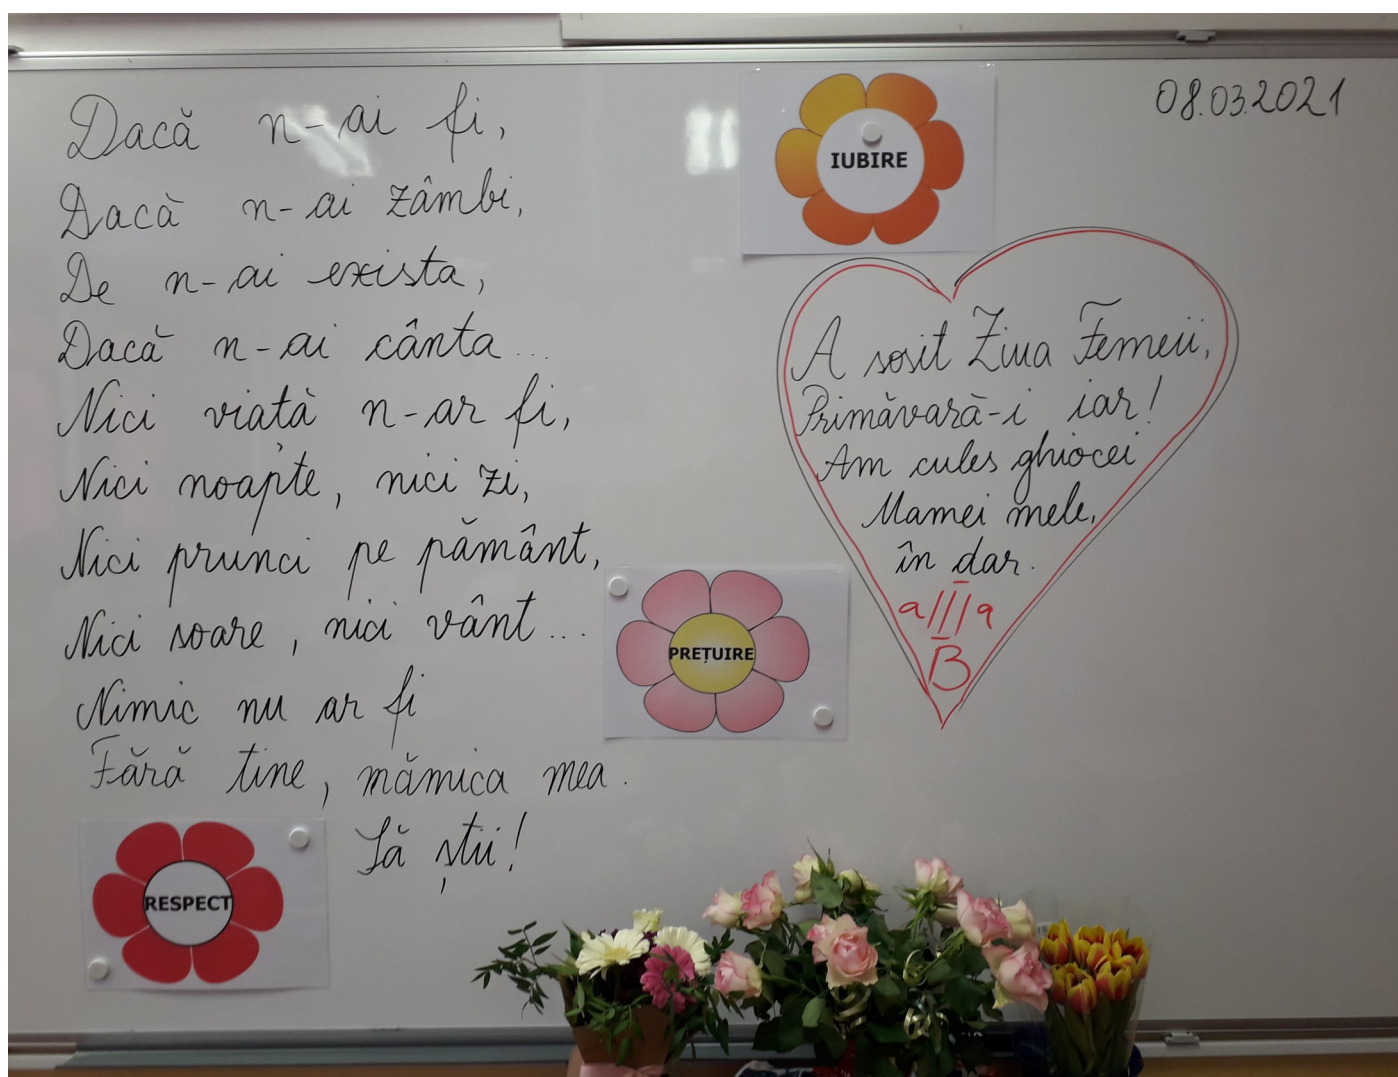 Dacă n-ai fi,
Dacă n-ai zâmbi,
De n-ai exista,
Dacă n-ai cânta...
Nici viață n-ar fi,
Nici noapte, nici zi,
Nici prunci pe pământ,
Nici soare, nici vânt...
Nimic nu ar fi
Fără tine, mămica mea.
Să știi!
RESPECT
IUBIRE
PREȚUIRE
08.03.2021
A sosit Ziua Femeii,
Primăvară-i iar!
Am cules ghiocei
Mamei mele,
în dar.
a III a
B